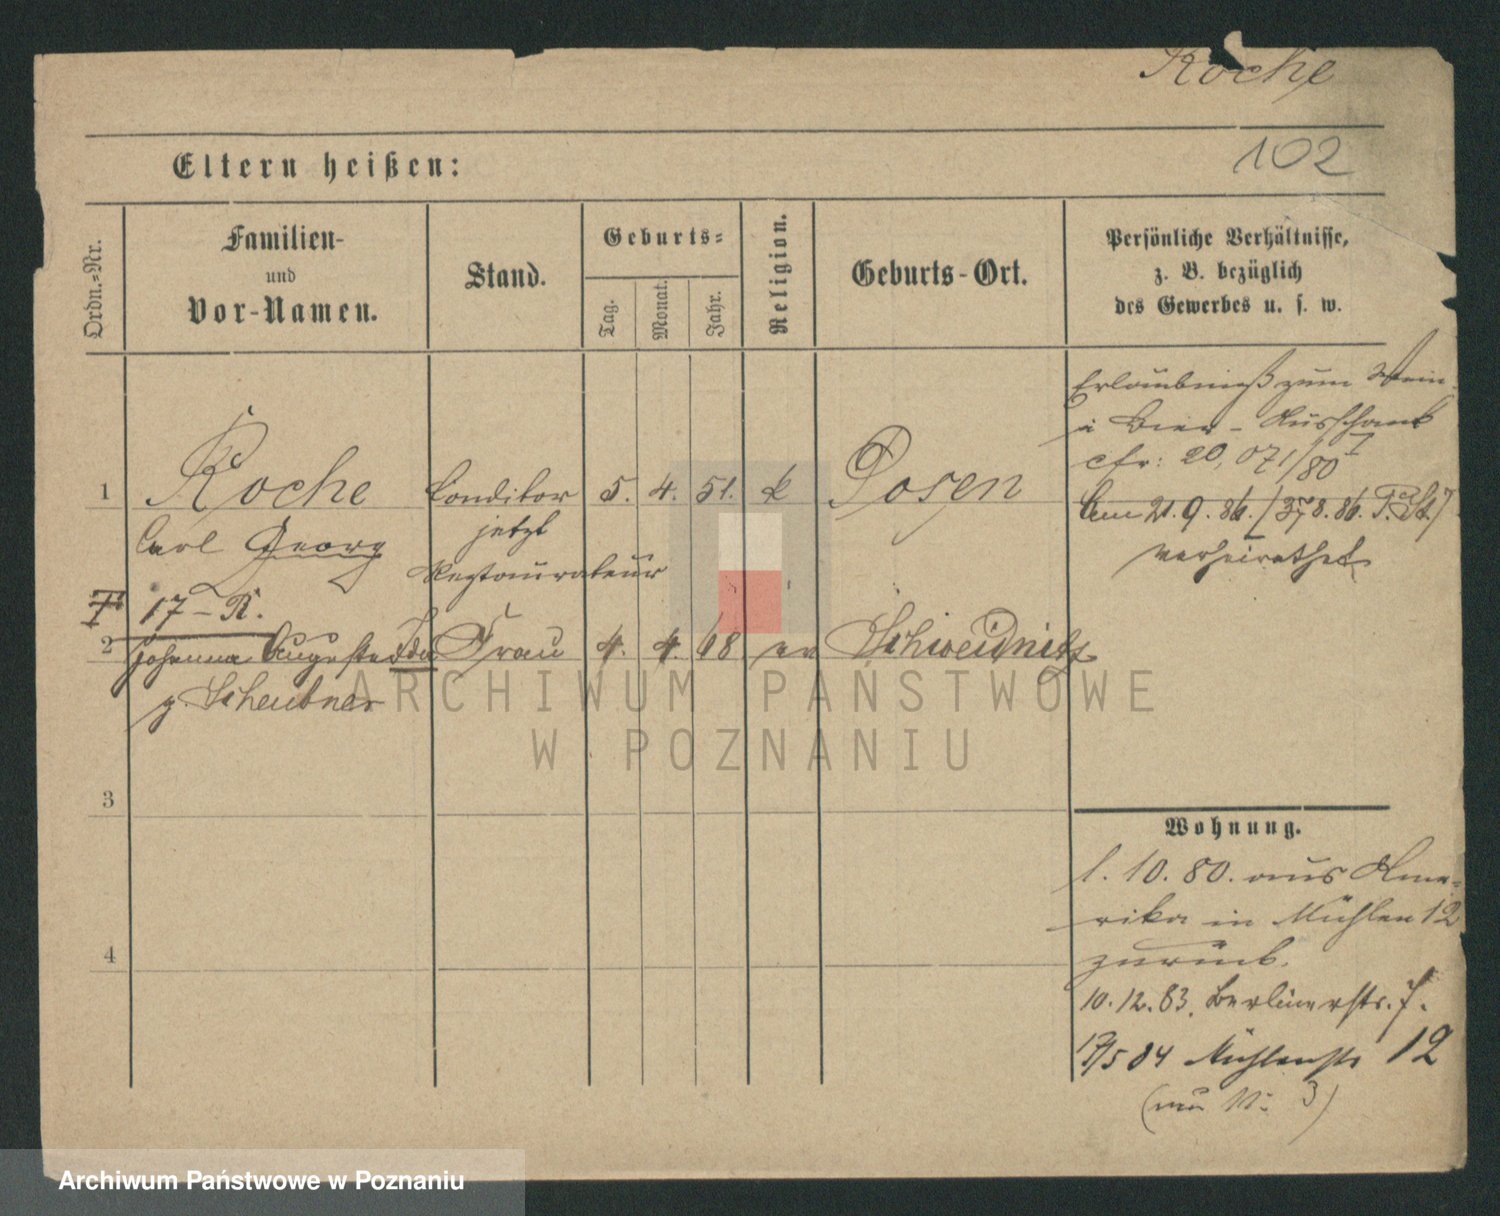 Roche
102
Eltern heißen:
Ordn.-Nr.
Familien-
und
Vor-Namen.
Stand.
Geburts-
Tag.
Monat.
Jahr.
Religion.
Geburts-Ort.
Persönliche Verhältnisse,
z. B. bezüglich
des Gewerbes u. s. w.
Erlaubniß zum Wein
u Bier-Ausschank
cfr: 20,071/80 I
1 Roche Conditor 5. 4. 51. k Posen
Am 21.9.86.
verheirathet
Carl Georg jetzt
Restaurateur
17-R.
2 Johanna Auguste Ida Frau 4. 4. 68 ev Schweidnitz
g. Scheubner
ARCHIWUM PAŃSTWOWE
W POZNANIU
3
Wohnung.
1. 10. 80. aus Ame-
rika in Mühlen 12
zurück.
4
10. 12. 83. Berlinerstr. 7.
5 84 Mühlenstr 12
(nu N: 3)
Archiwum Państwowe w Poznaniu